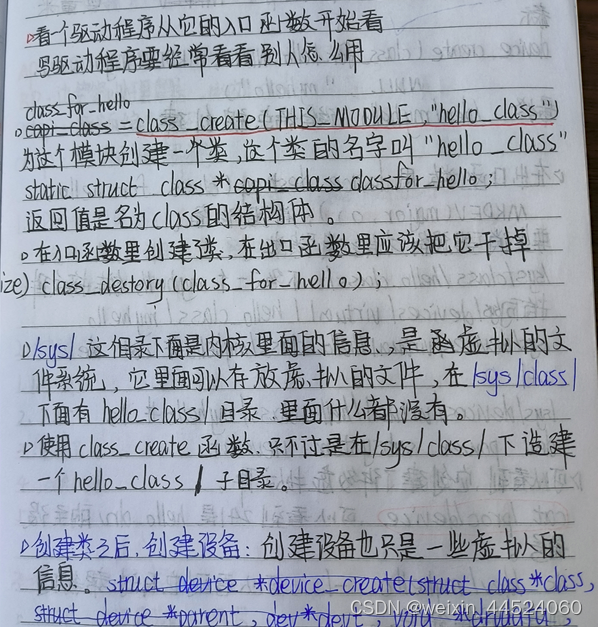 ▷看个驱动程序从它的入口函数开始看
写驱动程序要经常看看别人怎么用
class_for_hello
▷capi_class = class_create(THIS_MODULE, "hello_class")
为这个模块创建一个类,这个类的名字叫"hello_class"
static struct class *capi_class classfor_hello;
返回值是名为class的结构体。
▷在入口函数里创建了类,在出口函数里应该把它干掉
ize) class_destory(class_for_hello);
▷/sys/ 这个目录下面是内核里面的信息,是函虚拟的文
件系统,它里面可以存放虚拟的文件,在/sys/class/
下面有hello_class/目录.里面什么都没有。
▷使用class_create函数.只不过是在/sys/class/下造建
一个hello_class/子目录。
▷创建类之后,创建设备:创建设备也只是一些虚拟的
信息。struct device *device_create(struct class *class,
struct device *parent, dev*devt, void *drvdata,
CSDN @weixin_44524060